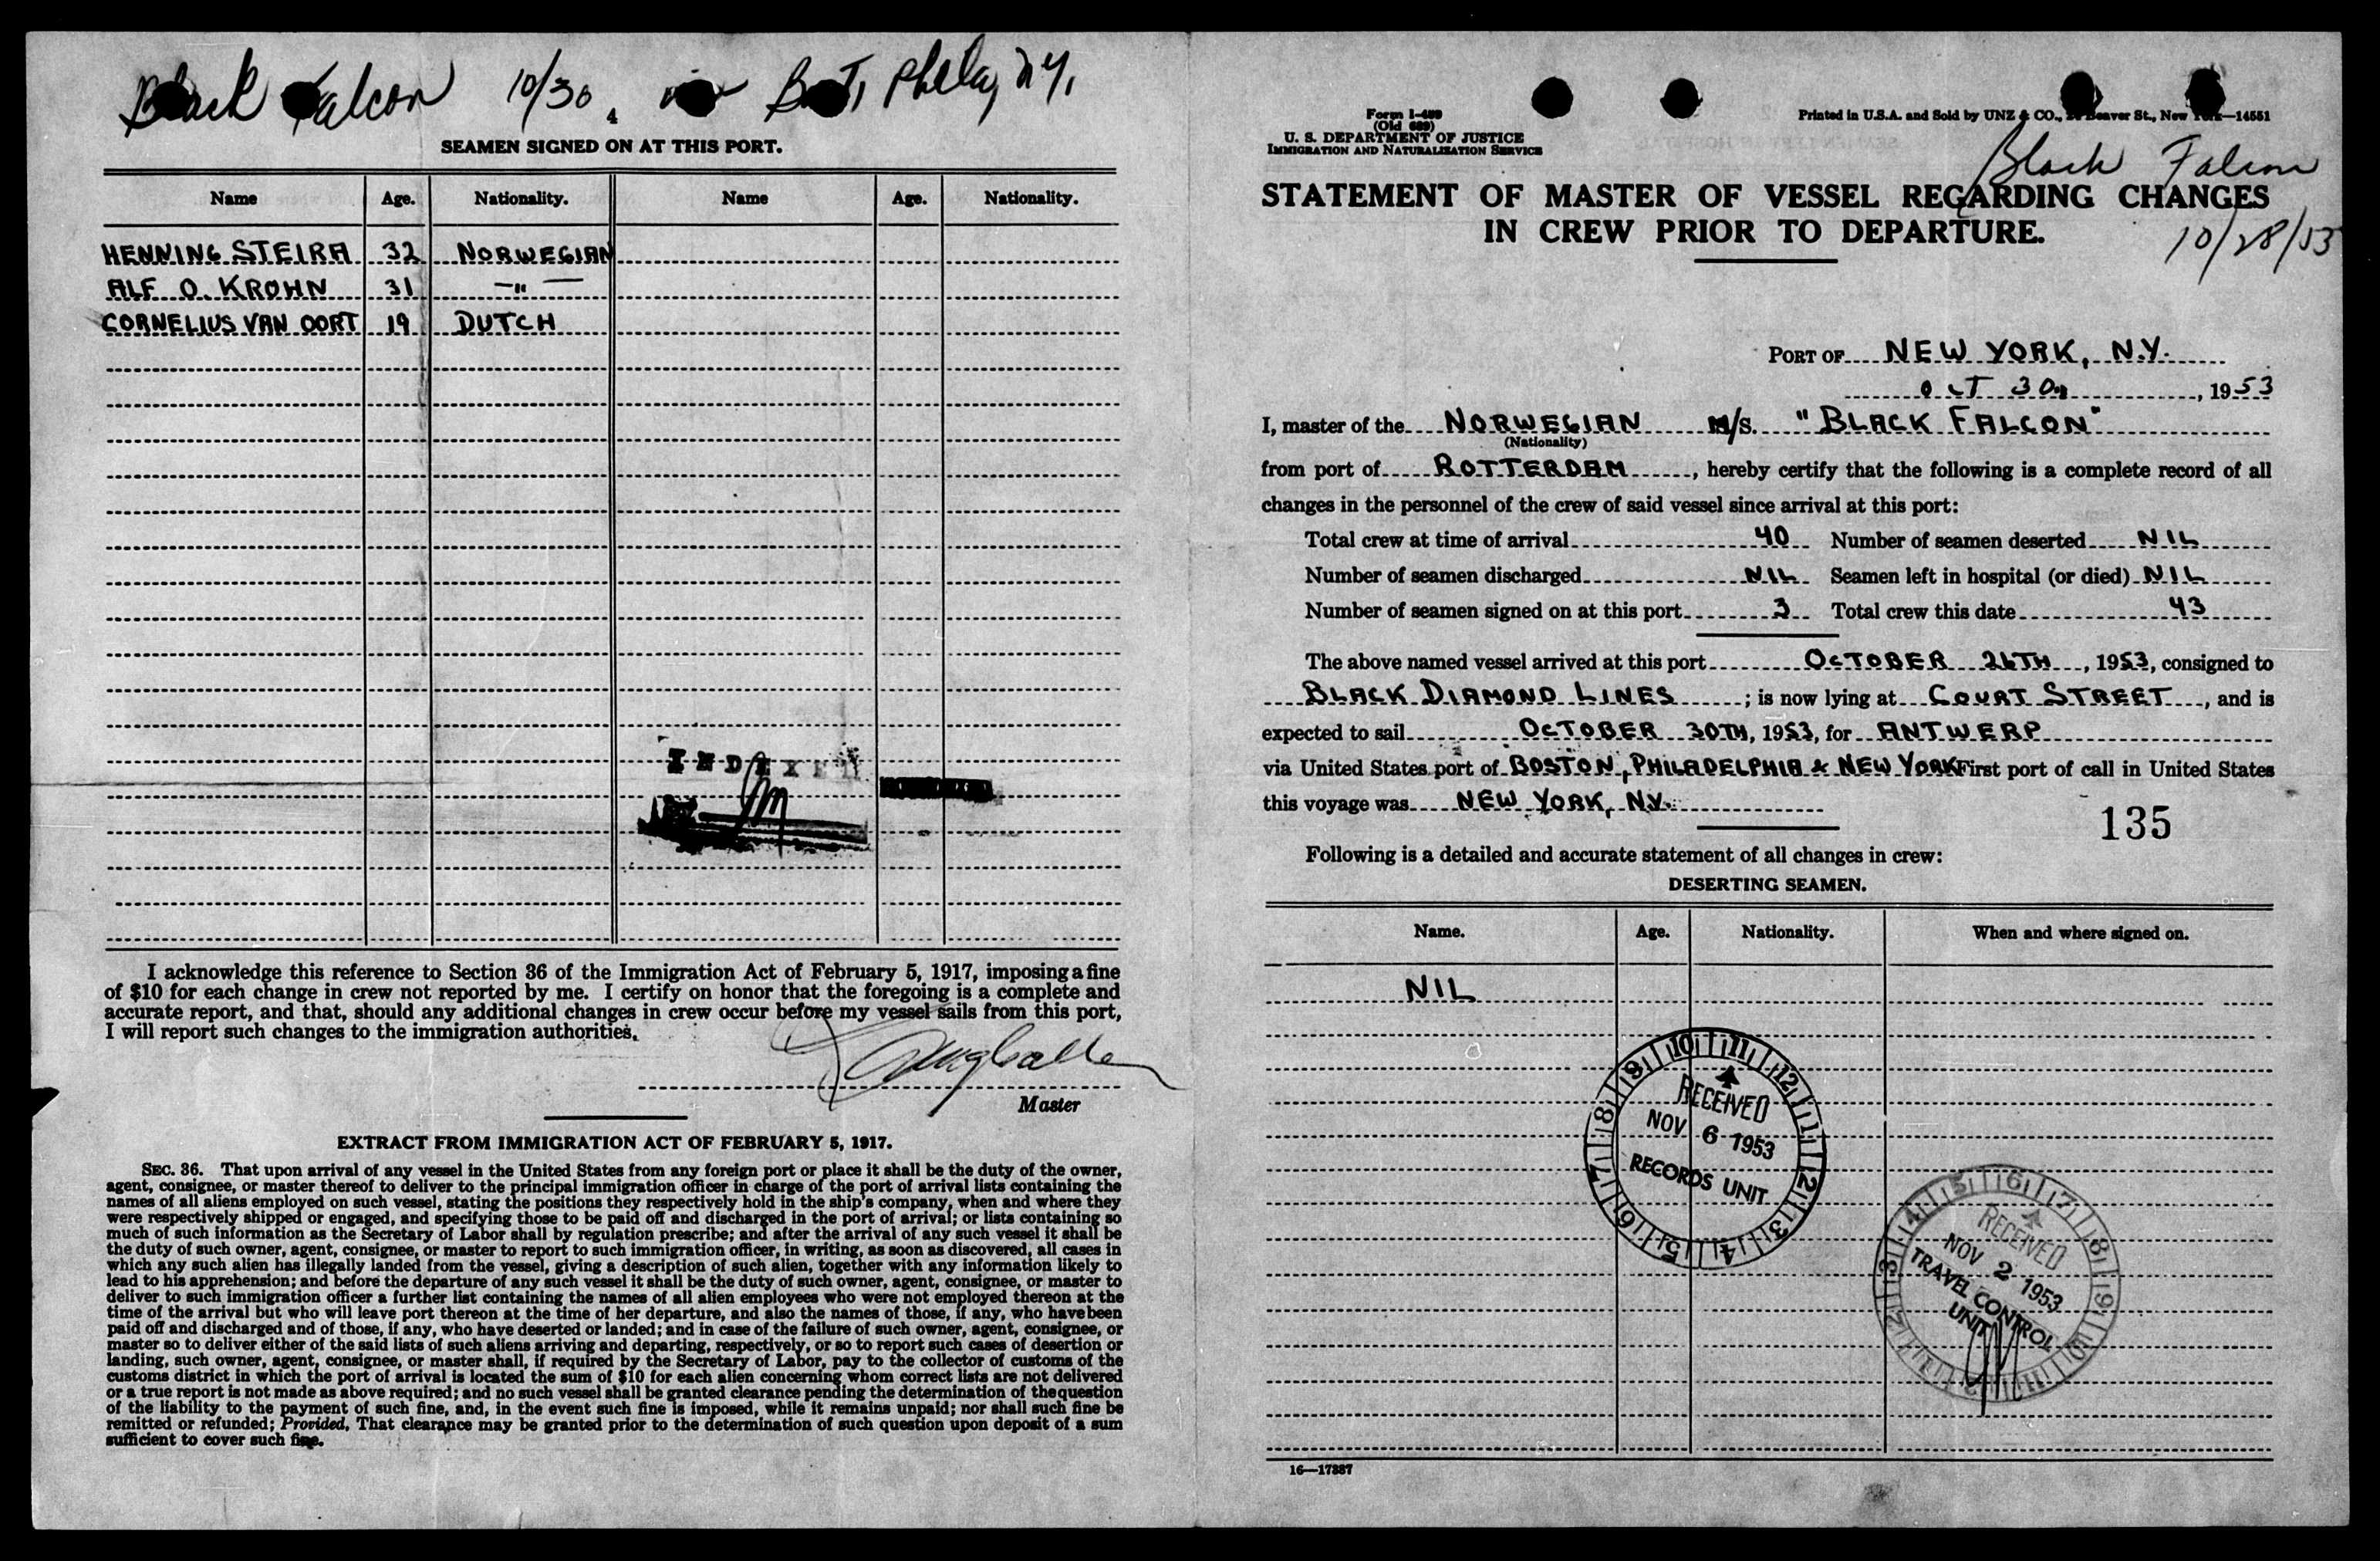 Black Falcon 10/30 Phila, N.Y.
4
SEAMEN SIGNED ON AT THIS PORT.
Name Age. Nationality. Name Age. Nationality.
HENNING STEIRA 32 NORWEGIAN
ALF O. KROHN 31 —"—
CORNELIUS VAN OORT 19 DUTCH
INDEXED
I acknowledge this reference to Section 36 of the Immigration Act of February 5, 1917, imposing a fine
of $10 for each change in crew not reported by me. I certify on honor that the foregoing is a complete and
accurate report, and that, should any additional changes in crew occur before my vessel sails from this port,
I will report such changes to the immigration authorities.
Master
EXTRACT FROM IMMIGRATION ACT OF FEBRUARY 5, 1917.
SEC. 36. That upon arrival of any vessel in the United States from any foreign port or place it shall be the duty of the owner,
agent, consignee, or master thereof to deliver to the principal immigration officer in charge of the port of arrival lists containing the
names of all aliens employed on such vessel, stating the positions they respectively hold in the ship's company, when and where they
were respectively shipped or engaged, and specifying those to be paid off and discharged in the port of arrival; or lists containing so
much of such information as the Secretary of Labor shall by regulation prescribe; and after the arrival of any such vessel it shall be
the duty of such owner, agent, consignee, or master to report to such immigration officer, in writing, as soon as discovered, all cases in
which any such alien has illegally landed from the vessel, giving a description of such alien, together with any information likely to
lead to his apprehension; and before the departure of any such vessel it shall be the duty of such owner, agent, consignee, or master to
deliver to such immigration officer a further list containing the names of all alien employees who were not employed thereon at the
time of the arrival but who will leave port thereon at the time of her departure, and also the names of those, if any, who have been
paid off and discharged and of those, if any, who have deserted or landed; and in case of the failure of such owner, agent, consignee, or
master so to deliver either of the said lists of such aliens arriving and departing, respectively, or so to report such cases of desertion or
landing, such owner, agent, consignee, or master shall, if required by the Secretary of Labor, pay to the collector of customs of the
customs district in which the port of arrival is located the sum of $10 for each alien concerning whom correct lists are not delivered
or a true report is not made as above required; and no such vessel shall be granted clearance pending the determination of the question
of the liability to the payment of such fine, and, in the event such fine is imposed, while it remains unpaid; nor shall such fine be
remitted or refunded; Provided, That clearance may be granted prior to the determination of such question upon deposit of a sum
sufficient to cover such fine.
Form I-489
(Old 689)
U. S. DEPARTMENT OF JUSTICE
IMMIGRATION AND NATURALIZATION SERVICE
Printed in U.S.A. and Sold by UNZ & CO., Beaver St., New York—14551
Black Falcon
10/28/53
STATEMENT OF MASTER OF VESSEL REGARDING CHANGES
IN CREW PRIOR TO DEPARTURE.
PORT OF NEW YORK, N.Y.
OCT 30, 1953
I, master of the NORWEGIAN M/S. "BLACK FALCON"
(Nationality)
from port of ROTTERDAM, hereby certify that the following is a complete record of all
changes in the personnel of the crew of said vessel since arrival at this port:
Total crew at time of arrival 40 Number of seamen deserted NIL
Number of seamen discharged NIL Seamen left in hospital (or died) NIL
Number of seamen signed on at this port 3 Total crew this date 43
The above named vessel arrived at this port OCTOBER 26TH, 1953, consigned to
BLACK DIAMOND LINES; is now lying at COURT STREET, and is
expected to sail OCTOBER 30TH, 1953, for ANTWERP
via United States port of BOSTON, PHILADELPHIA & NEW YORK First port of call in United States
this voyage was NEW YORK, N.Y.
135
Following is a detailed and accurate statement of all changes in crew:
DESERTING SEAMEN.
Name. Age. Nationality. When and where signed on.
NIL
RECEIVED
NOV 6 1953
RECORDS UNIT
RECEIVED
NOV 2 1953
TRAVEL CONTROL
UNIT
16—17387